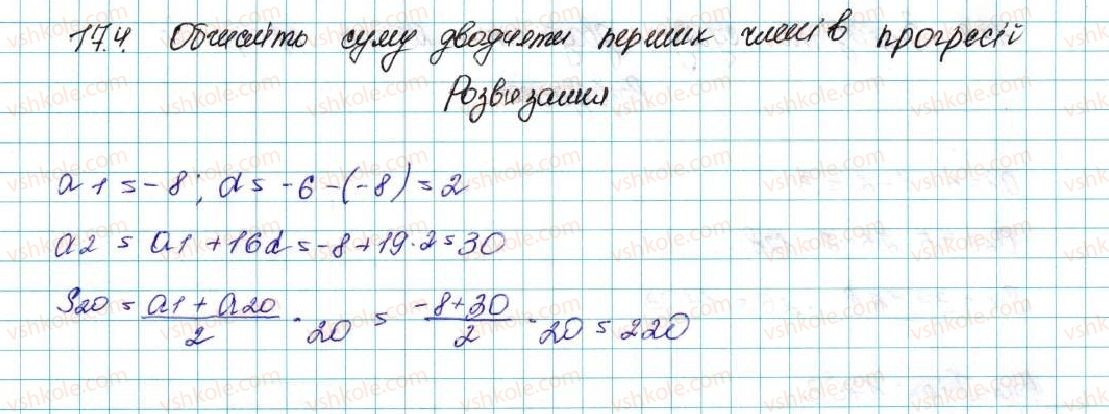 17.4 Обчисліть суму двадцяти перших членів прогресії
Розв'язання
a1 = -8; d = -6-(-8) = 2
a2 = a1 + 16d = -8+19·2 = 30
S20 = (a1 + a20)/2 · 20 = (-8+30)/2 · 20 = 220